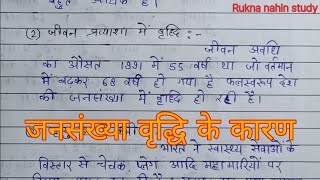 Rukna nahin study
बहुत अधिक है।
(2) जीवन प्रत्याशा में वृद्धि :-
जीवन अवधि
का औसत 1991 में 55 वर्ष था जो वर्तमान
में बढकर 68 वर्ष हो गया है फलस्वरूप देश
की जनसंख्या में वृद्धि हो रही है।
जनसंख्या वृद्धि के कारण
भारत में स्वास्थ्य सेवाओं के
विस्तार से चेचक, प्लेग आदि महामारियों पर